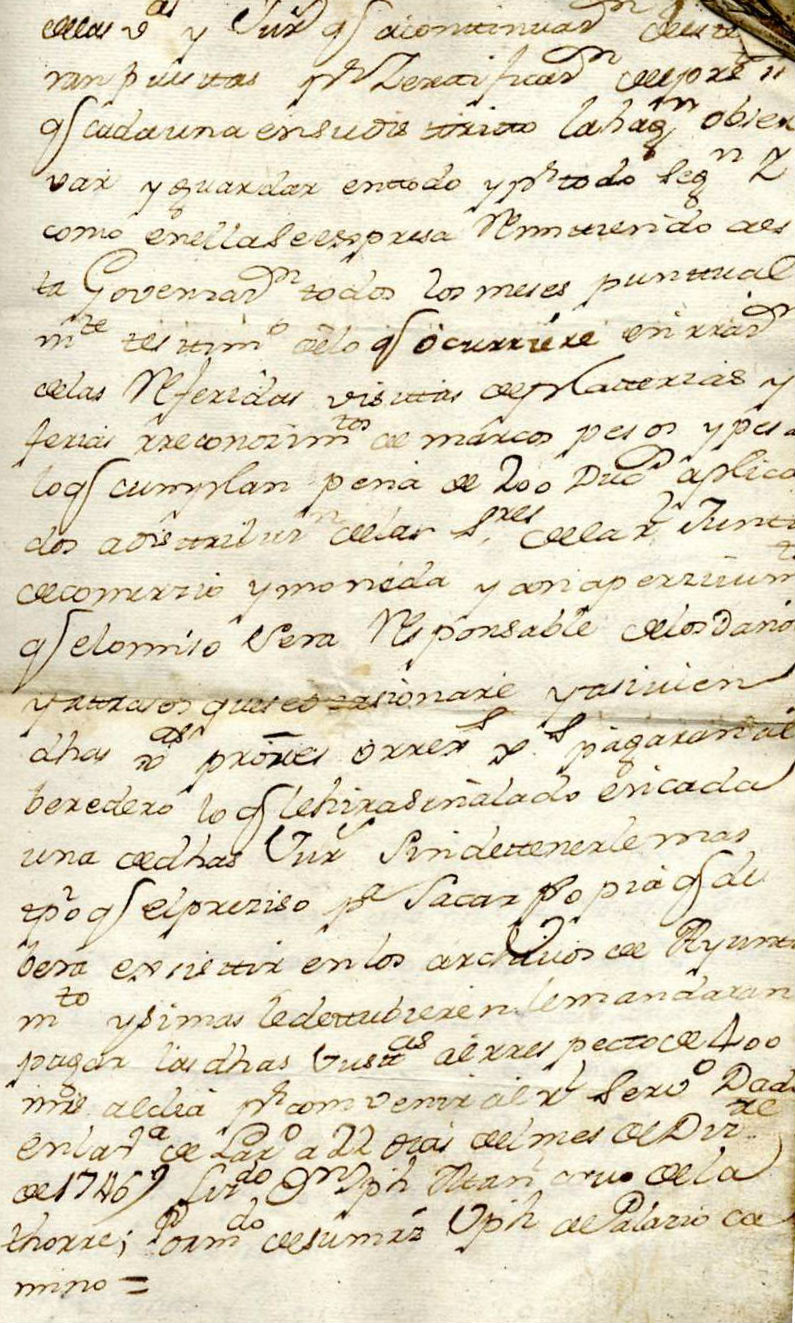 delas v.as y Jur.s q.e acontinuaz.n
ran puestas p.r Zertificaz.n de
q.e cada una en su distritto la hag.n obser
var y guardar en ttodo y p.r todo seg.n
como en ella se expresa Remitiendo a es
ta Governaz.n todos los meses punttual
m.te testtim.o de lo q.e ocurriere en rraz.n
de las Referidas visittas de Platterias y
ferias rreconozim.tos de marcos pesos y pesas
lo q.e cumplan pena de 200 Duc.s aplica
dos a disttribuz.n de los S.res de la r.l Juntta
de comerzio y moneda y con aperzivim.to
q.e el omiso sera Responsable de los Daños
y attrasos que se ocasionare y asi vien
dhas v.as
beredero lo q.e le hira señalado en cada
una de dhas Jur.s sin dettenerle mas
tpo q.e el preziso p.a sacar copia q.e de
bera existtir en los archivos de Ayuntta
m.to y si mas le dettubieren le mandaran
pagar las dhas Justt.as al rrespecto de 400
mrs al dia p.r convenir al r.l serv.o Dado
en la v.a de a 22 dias del mes de Diz.re
de 1746 firdo D.n Jph de la
thorre; Por m.do de su mrz Jph de Palazio ca
mino =